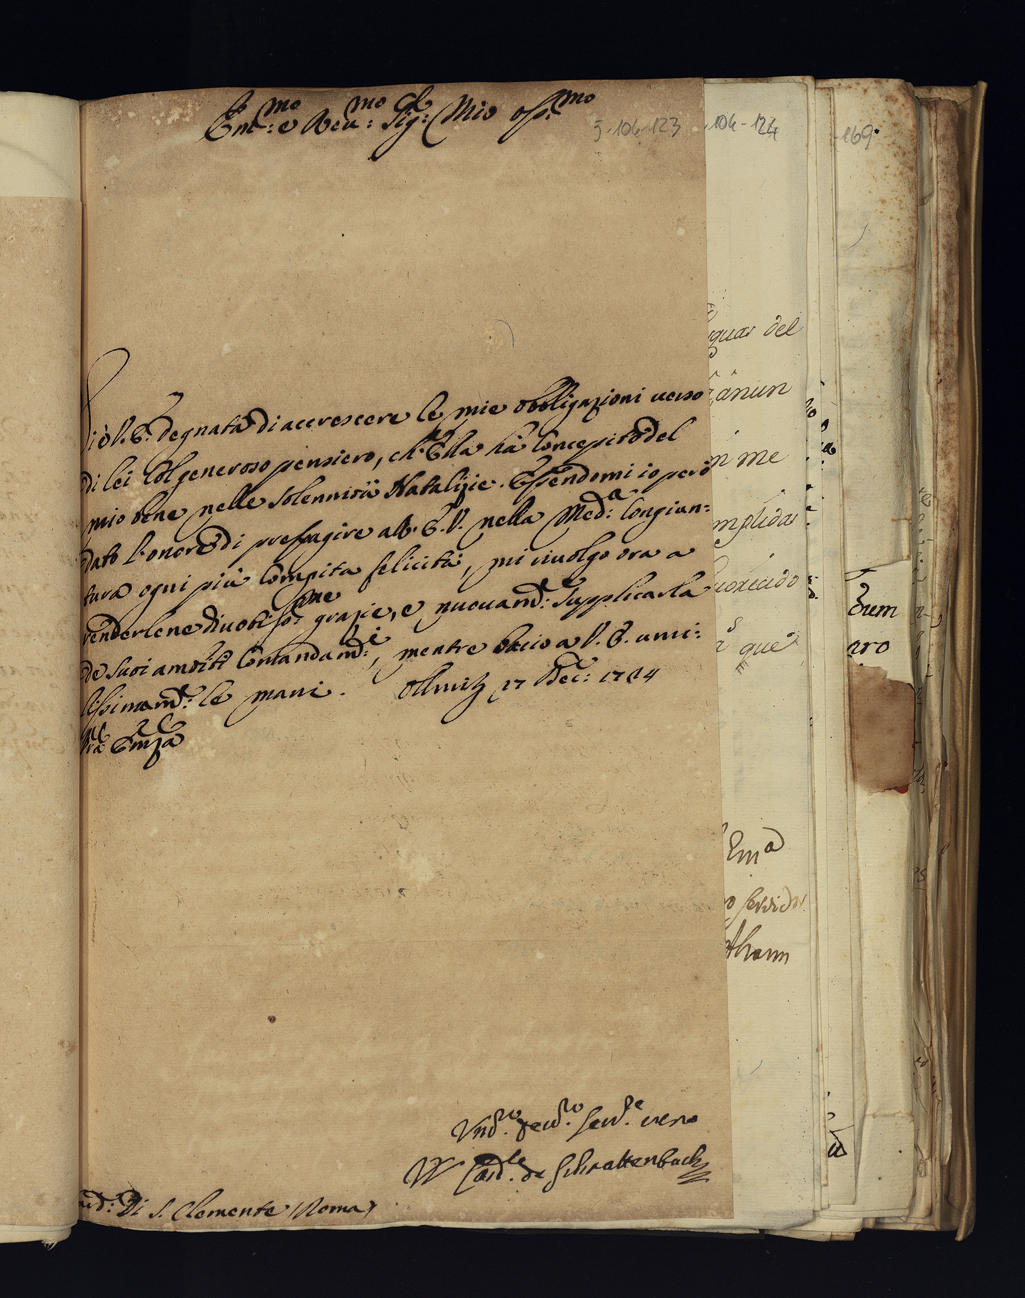 Em.mo e Rev.mo Sig.r Mio oss.mo
5-106-123
106-124
169
si è V. E. degnata di accrescere le mie obbligazioni verso
di lei col generoso pensiero, ch'Ella hà concepito del
mio bene nelle solennità Natalizie. Essendomi io però
dato l'onore di presagire all'E. V. nella Med.a congiun-
tura ogni più compita felicità, mi rivolgo ora a
renderlene divotis.me grazie, e nuovam.te supplicarla
de suoi ambiti comandam.ti, mentre bacio a V. E. umi-
lissimam.te le mani. Ollmitz 17 Dec.e 1724
V.ra Em.za
Um.o dev.o Ser.e vero
W Card.le de Schrattenbach
Card: di S. Clemente (Roma)
guar del
anun
me
mplida
que
Em.a
servidor
Althann
Zum
aro